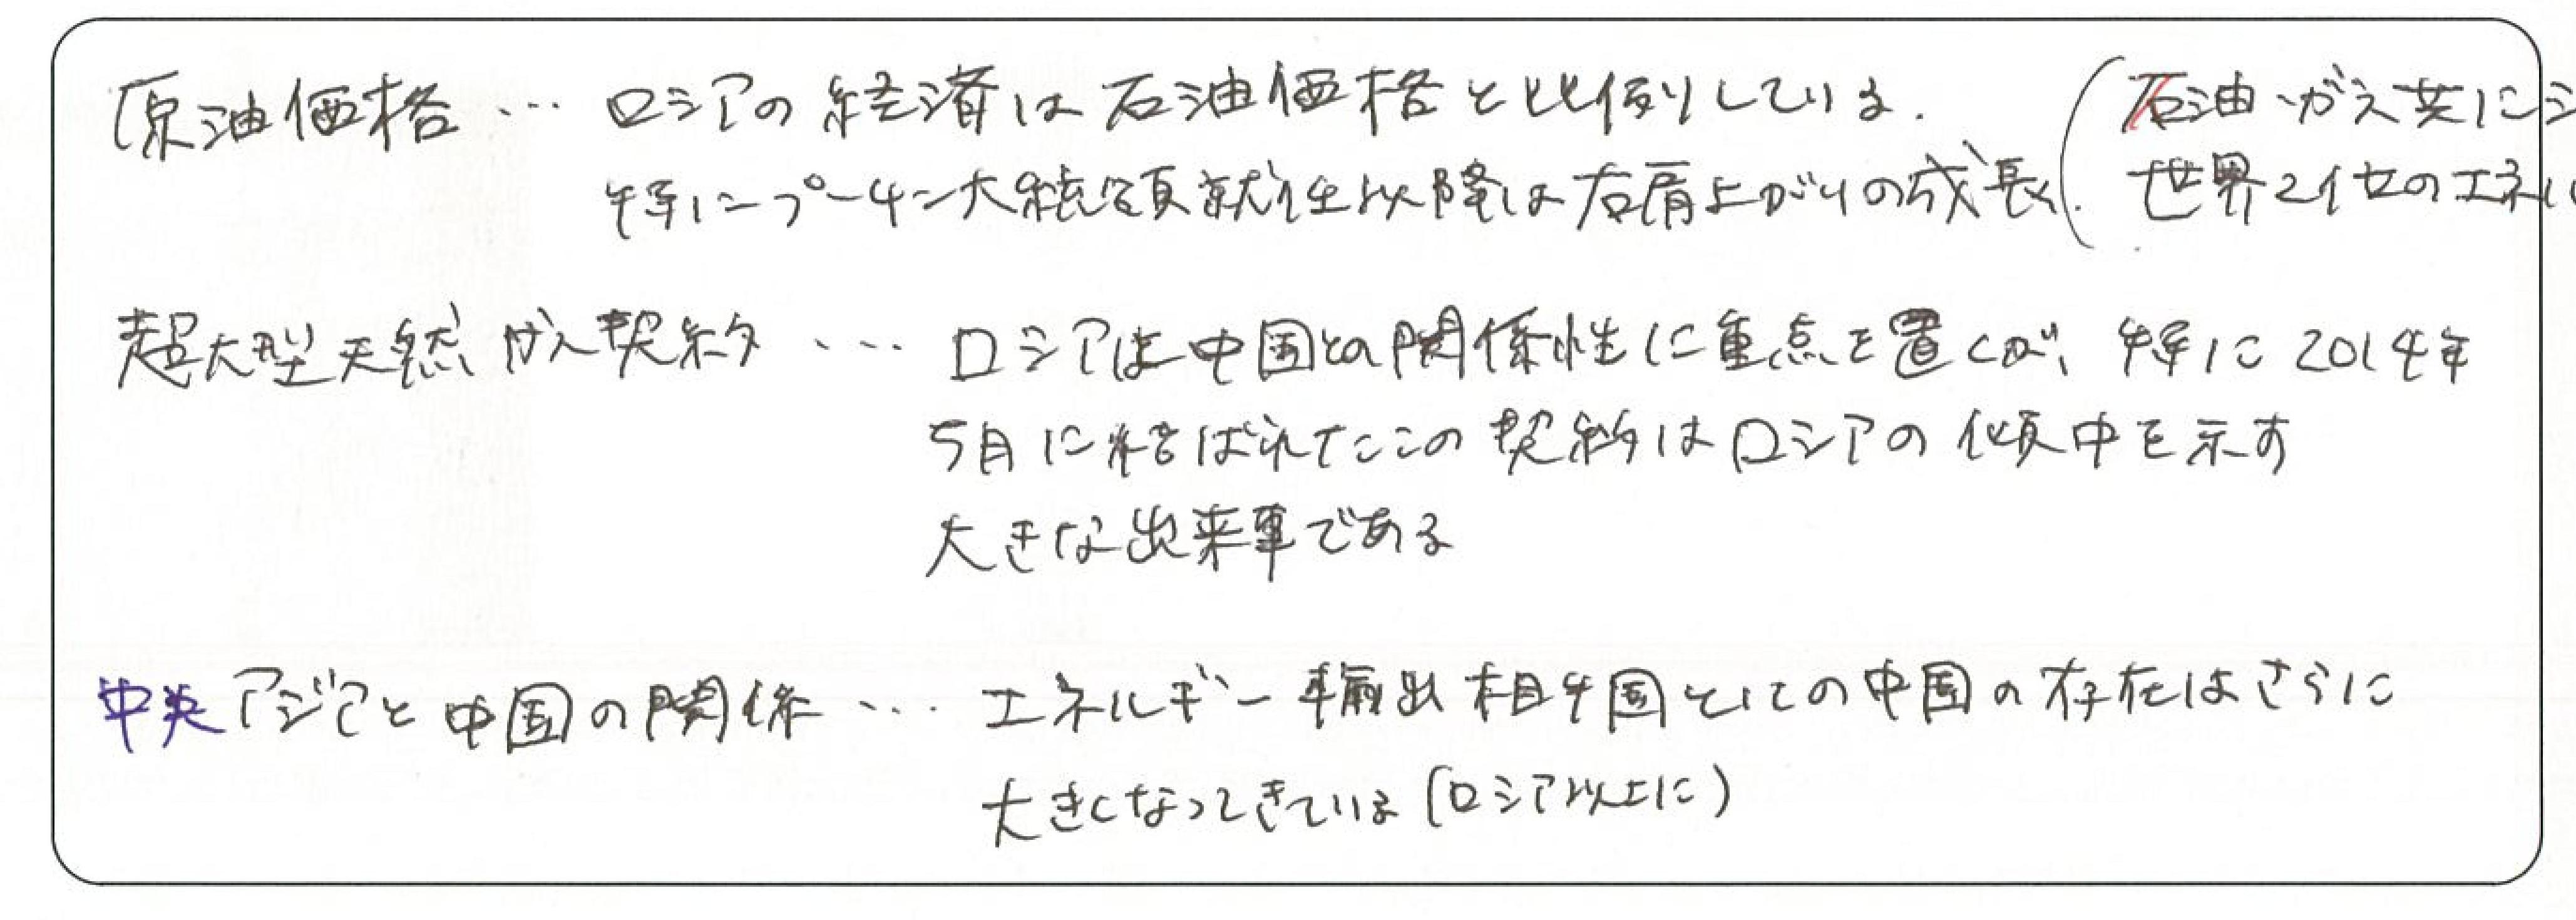 原油価格 … ロシアの経済は石油価格と比例している. (石油・ガス共に
特にプーチン大統領就任以降は右肩上がりの成長. 世界2位のエネル
超大型天然ガス契約 … ロシアは中国との関係性に重点を置くが、特に2014年
5月に結ばれたこの契約はロシアの傾中を示す
大きな出来事である
中央アジアと中国の関係 … エネルギー輸出相手国としての中国の存在はさらに
大きくなってきている (ロシア以上に)